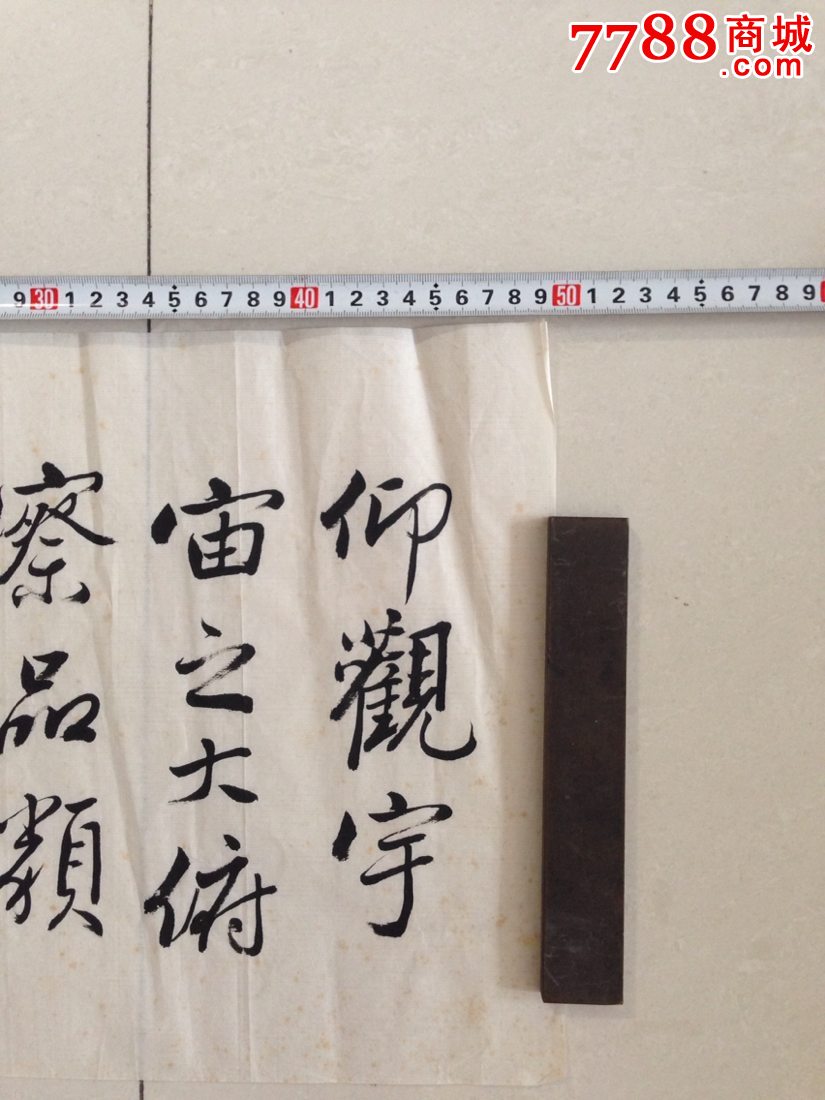 7788商城
.com
9 30 1 2 3 4 5 6 7 8 9 40 1 2 3 4 5 6 7 8 9 50 1 2 3 4 5 6 7 8 9
仰觀宇
宙之大俯
察品類